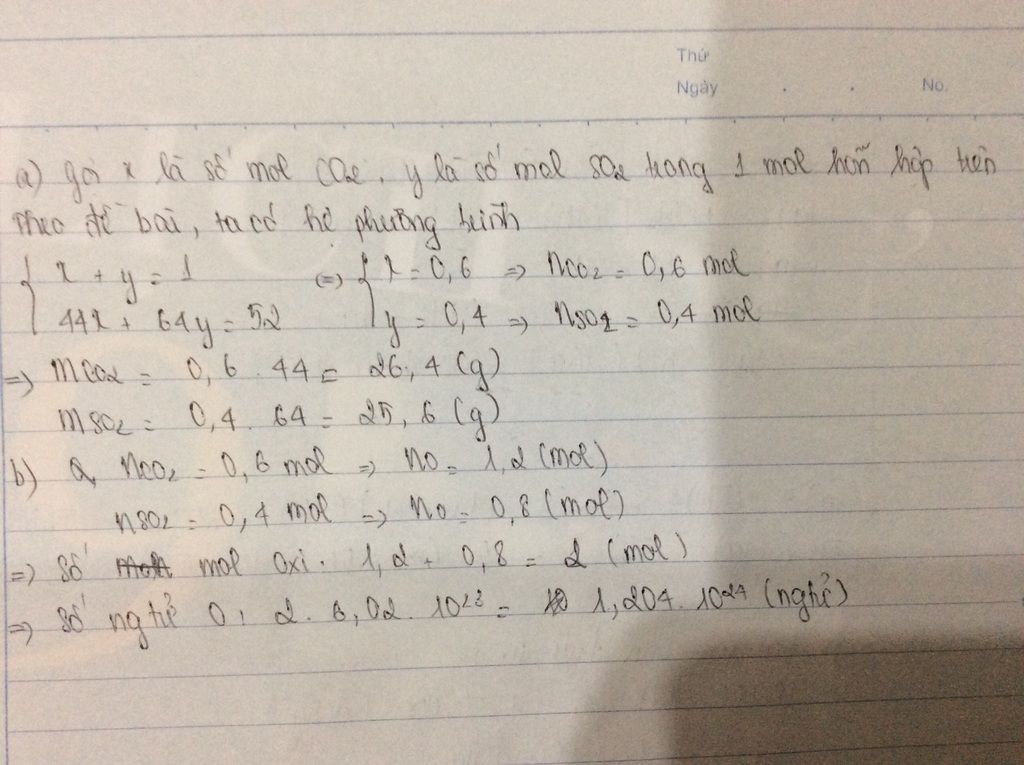 Thứ
Ngày . . No.
a) gọi x là số mol CO2, y là số mol SO2 trong 1 mol hỗn hợp trên
theo đề bài, ta có hệ phương trình
{ x + y = 1 (=) { x = 0,6 => nCO2 = 0,6 mol
44x + 64y = 52 y = 0,4 => nSO2 = 0,4 mol
=> mCO2 = 0,6 . 44 = 26,4 (g)
mSO2 = 0,4 . 64 = 25,6 (g)
b) nCO2 = 0,6 mol => nO = 1,2 (mol)
nSO2 = 0,4 mol => nO = 0,8 (mol)
=> số mol Oxi : 1,2 + 0,8 = 2 (mol)
=> số ngtử O : 2 . 6,02 . 10²³ = 1,204 . 10²⁴ (ngtử)